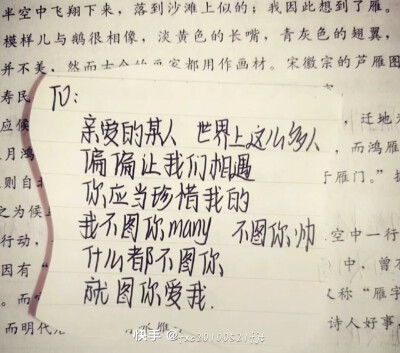 半空中飞翔下来，落到沙滩上似的；我因此想到了雁。
模样儿与鹅很相像，淡黄色的长嘴，青灰色的翅翼，
并不美，然而古今的画家都用作画材。宋徽宗的芦雁图
寿民
TO：
亲爱的某人 世界上这么多人
偏偏让我们相遇
你应当珍惜我的
我不图你many 不图你帅
什么都不图你
就图你爱我.
应候
迁地
月鸿
而鸿雁
则自
于雁门。"
之为候
行动，
空中一行
因有"
中，曾
。而
又称"雁字
而明代
诗人好事，
快手